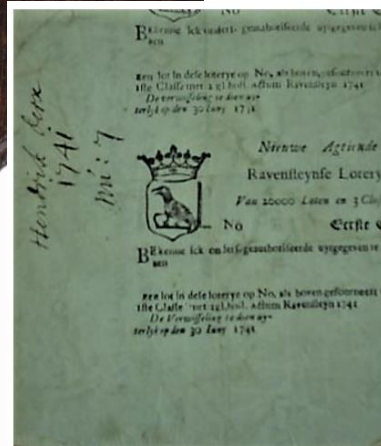 No Eerste
BEkenne Ick onders. geauthoriseerde uytgegeven te
een
een lot in dese loterye op No, als boven, gefourneert
1ste Classe met 1 gl. holl. Actum Ravensteyn 1741
De verwisseling te doen uy-
terlyk op den 30 Iuny 1741
Hendrick
1741
No: 7
Nieuwe Agtiende
Ravensteynse Lotery
Van 20000 Loten en 3
No Eerste
BEkenne Ick onders. geauthoriseerde uytgegeven te
een
een lot in dese loterye op No, als boven gefourneert
1ste Classe met 1 gl. holl. Actum Ravensteyn 1741
De Verwisseling te doen uy-
terlyk op den 30 Iuny 1741